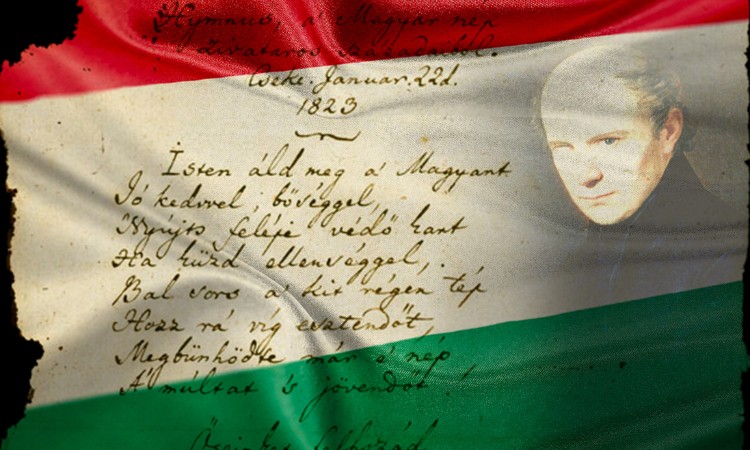 Hymnus, a' Magyar nép
zivataros századaiból.
Cseke. Januar. 22d.
1823
Isten áld meg a' Magyart
Jó kedvvel, bőséggel,
Nyújts feléje védő kart
Ha küzd ellenséggel,
Bal sors a' kit régen tép
Hozz rá víg esztendőt,
Megbűnhődte már e' nép
A' múltat 's jövendőt!